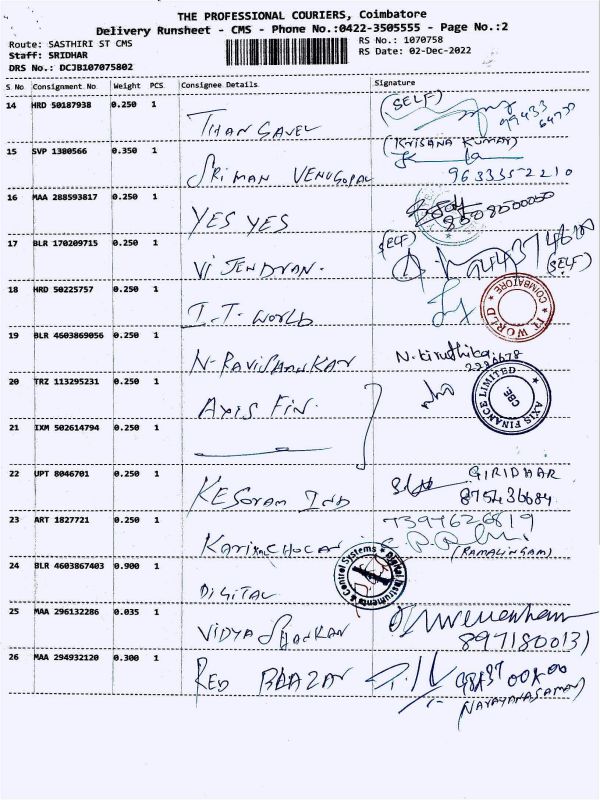 THE PROFESSIONAL COURIERS, Coimbatore
Delivery Runsheet - CMS - Phone No.:0422-3505555 - Page No.:2
Route: SASTHIRI ST CMS
RS No.: 1070758
Staff: SRIDHAR
RS Date: 02-Dec-2022
DRS No.: DCJB107075802
S No Consignment No Weight PCS Consignee Details Signature
14 HRD 50187938 0.250 1 THANGAVEL (SELF)
15 SVP 1380566 0.350 1 SRIMAN VENUGOPAL (KRISANA KUMAR)
9633352210
16 MAA 288593817 0.250 1 YES YES
17 BLR 170209715 0.250 1 VIJENDRAN. (SELF)
(SELF)
18 HRD 50225757 0.250 1 I.T. WORLD
COIMBATORE
IT WORLD
19 BLR 4603869056 0.250 1 N. RAVISHANKAR N. Kiruthika
20 TRZ 113295231 0.250 1 AXIS FIN.
AXIS FINANCE LIMITED
CBE
21 IXM 502614794 0.250 1
22 UPT 8046701 0.250 1 KESORAM IND GIRIDHAR
23 ART 1827721 0.250 1 7397626819
(RAMALINGAM)
24 BLR 4603867403 0.900 1 DIGITAL
Digital Instruments & Control Systems
25 MAA 296132286 0.035 1 VIDYA SHANKAR
8971800131
26 MAA 294932120 0.300 1 RED BLAZAR
(NARAYANASAMY)